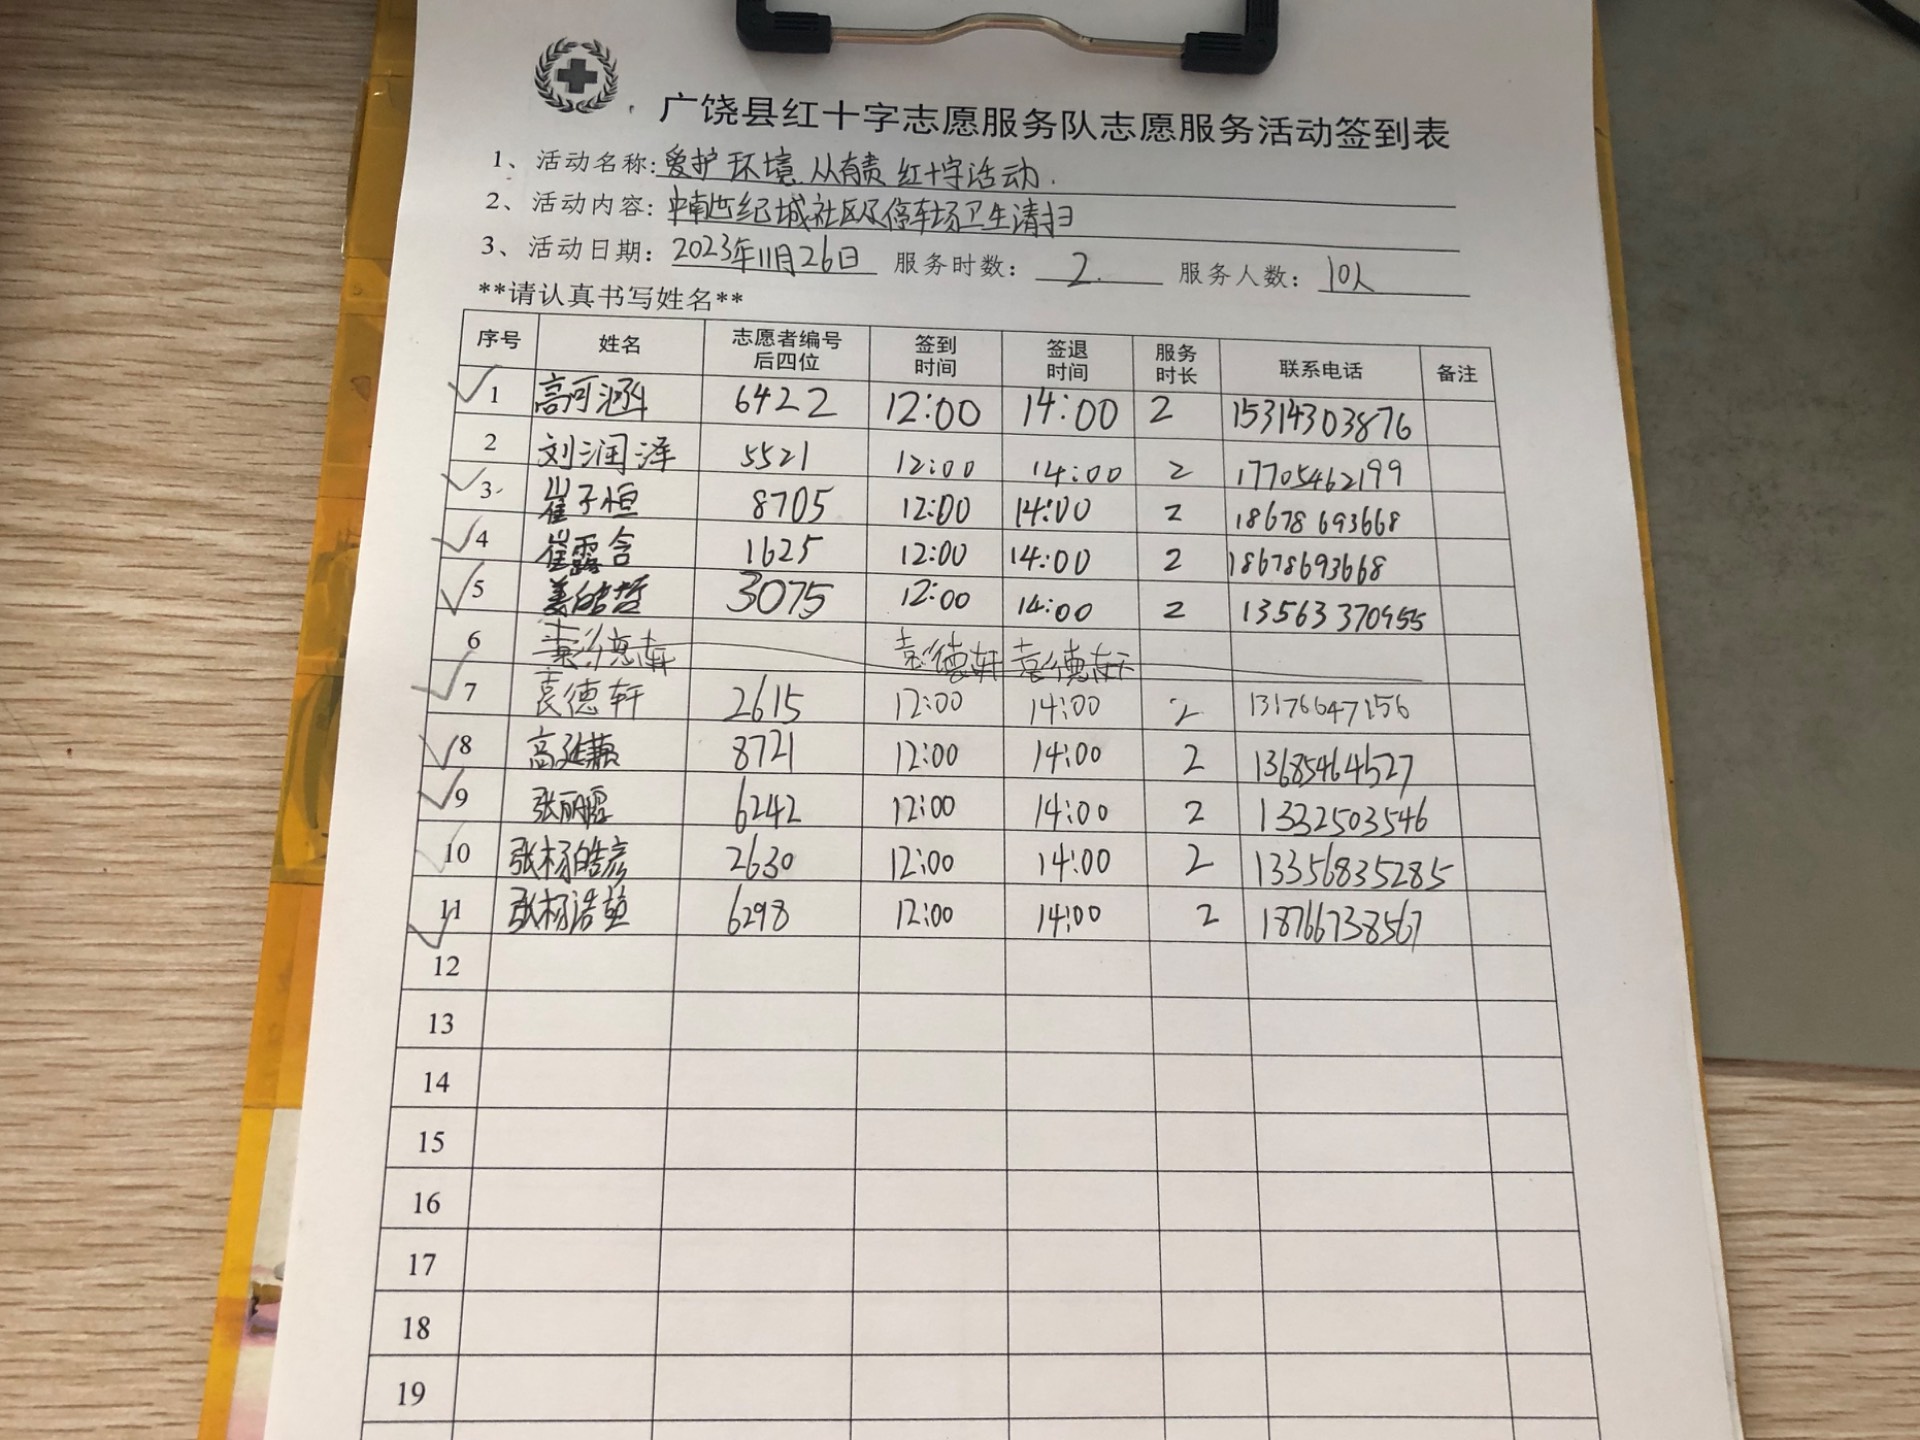 广饶县红十字志愿服务队志愿服务活动签到表
1、活动名称:爱护环境 从有责 红十字活动.
2、活动内容:中南世纪城社区及停车场卫生请扫
3、活动日期:2023年11月26日 服务时数:2. 服务人数:10人
**请认真书写姓名**
序号 姓名 志愿者编号后四位 签到时间 签退时间 服务时长 联系电话 备注
1 高可涵 6422 12:00 14:00 2 15314303876
2 刘润泽 5521 12:00 14:00 2 17705462199
3 崔子恒 8705 12:00 14:00 2 18678693668
4 崔露含 1625 12:00 14:00 2 18678693668
5 姜皓哲 3075 12:00 14:00 2 13563370955
6
7 袁德轩 2615 12:00 14:00 2 13176647156
8 高延 8721 12:00 14:00 2 13685464527
9 张丽 6242 12:00 14:00 2 1332503546
10 张杨皓彦 2630 12:00 14:00 2 13356835285
11 张杨浩 6298 12:00 14:00 2 18766738567
12
13
14
15
16
17
18
19